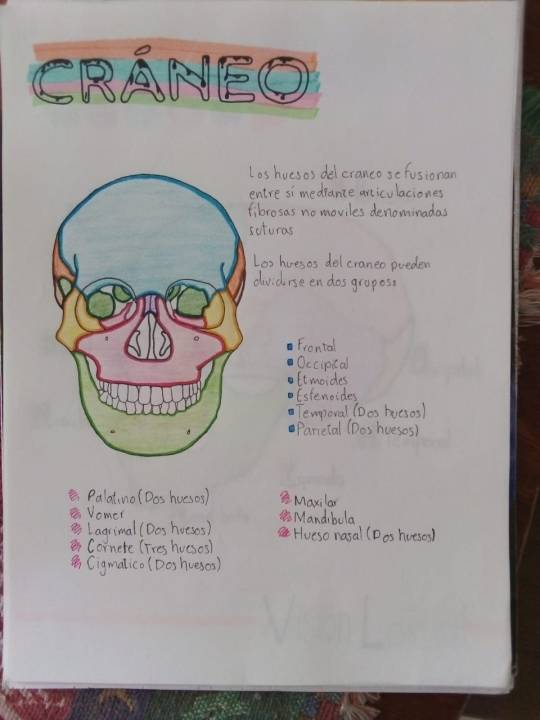 CRÁNEO
Los huesos del craneo se fusionan
entre sí mediante articulaciones
fibrosas no moviles denominadas
suturas
Los huesos del craneo pueden
dividirse en dos grupos:
Frontal
Occipital
Etmoides
Esfenoides
Temporal (Dos huesos)
Parietal (Dos huesos)
Palatino (Dos huesos)
Vomer
Lagrimal (Dos huesos)
Cornete (Tres huesos)
Cigmatico (Dos huesos)
Maxilar
Mandibula
Hueso nasal (Dos huesos)